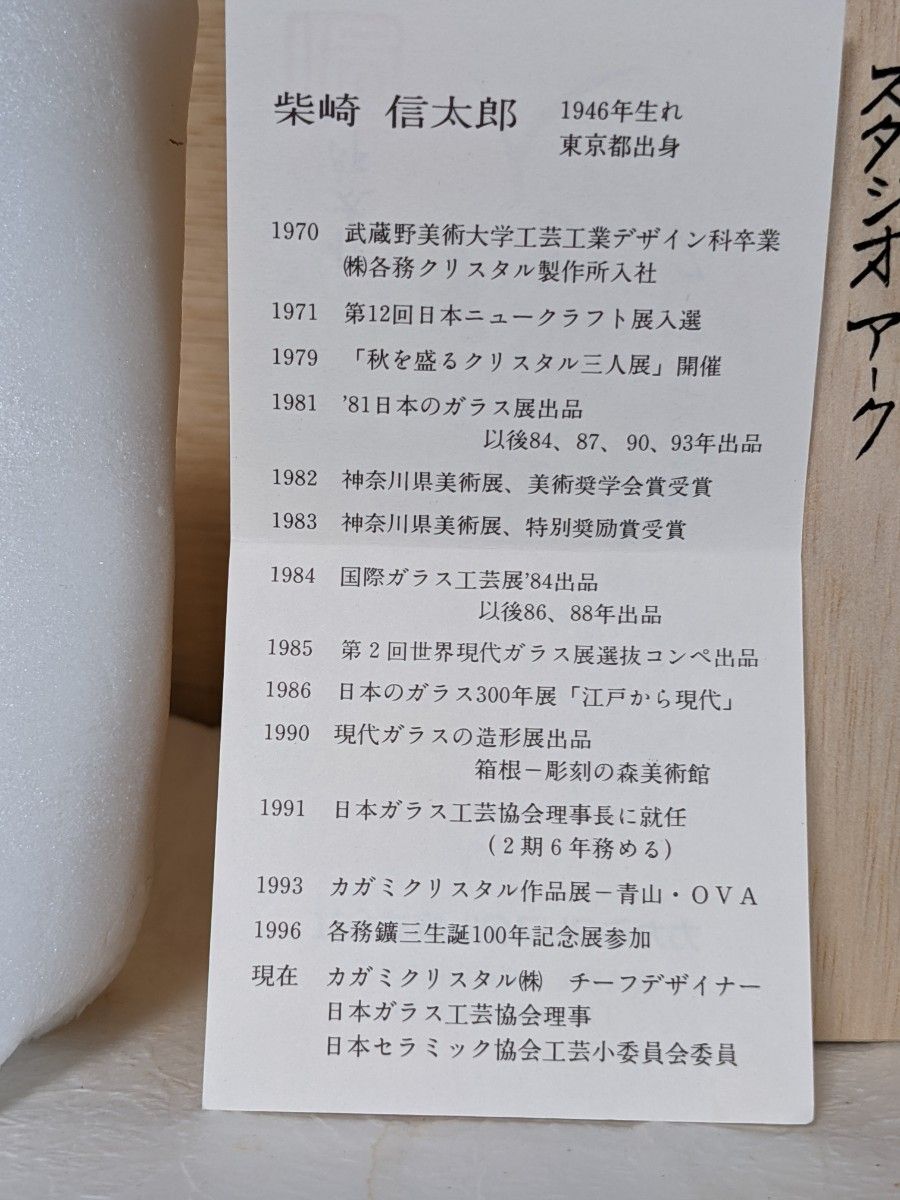 柴崎 信太郎
1946年生れ
東京都出身
1970 武蔵野美術大学工芸工業デザイン科卒業
㈱各務クリスタル製作所入社
1971 第12回日本ニュークラフト展入選
1979 「秋を盛るクリスタル三人展」開催
1981 '81日本のガラス展出品
以後84、87、90、93年出品
1982 神奈川県美術展、美術奨学会賞受賞
1983 神奈川県美術展、特別奨励賞受賞
1984 国際ガラス工芸展'84出品
以後86、88年出品
1985 第2回世界現代ガラス展選抜コンペ出品
1986 日本のガラス300年展「江戸から現代」
1990 現代ガラスの造形展出品
箱根－彫刻の森美術館
1991 日本ガラス工芸協会理事長に就任
(2期6年務める)
1993 カガミクリスタル作品展－青山・OVA
1996 各務鑛三生誕100年記念展参加
現在 カガミクリスタル㈱ チーフデザイナー
日本ガラス工芸協会理事
日本セラミック協会工芸小委員会委員
スタジオ アーク